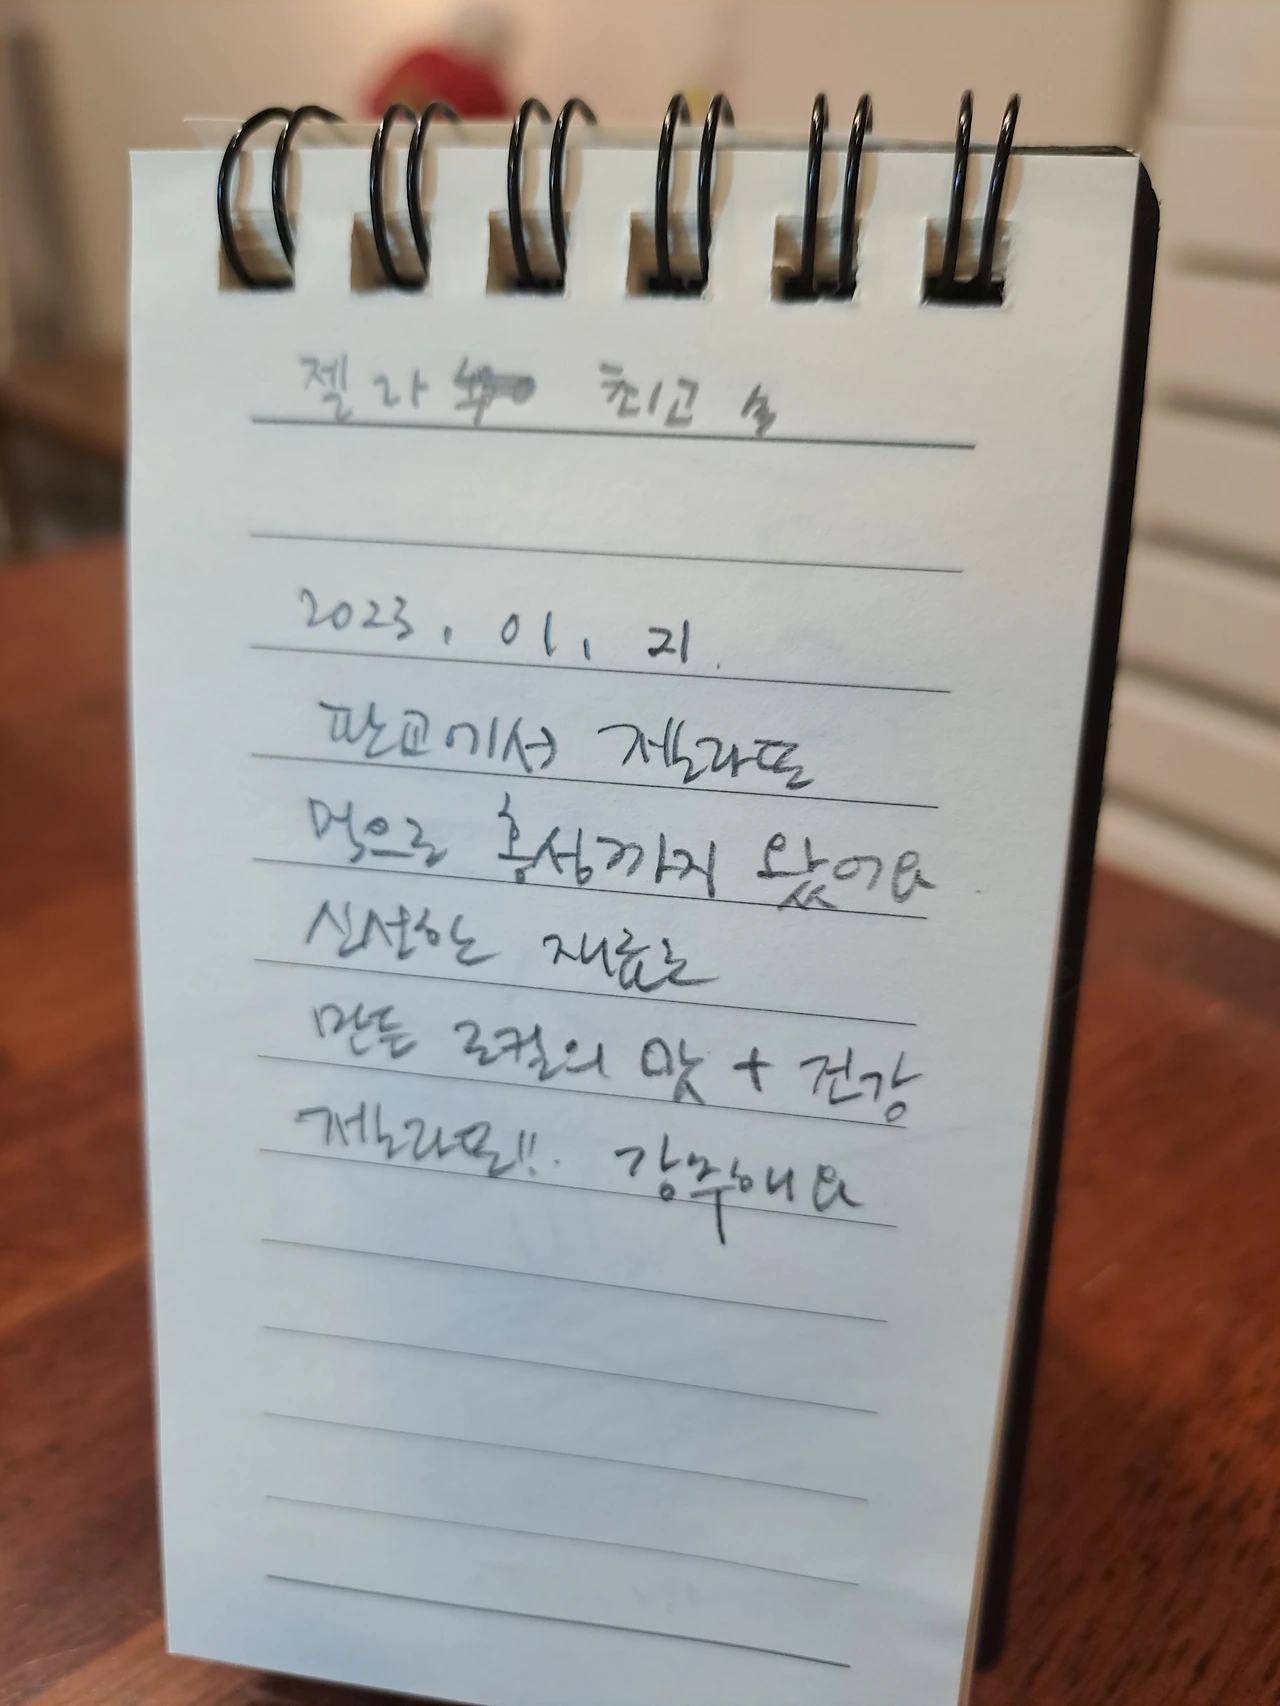 젤라 최고
2023. 01. 21.
판교에서 젤라또
먹으로 홍성까지 왔어요
신선한 재료로
만든 로컬의 맛 + 건강
젤라또!! 강추해요